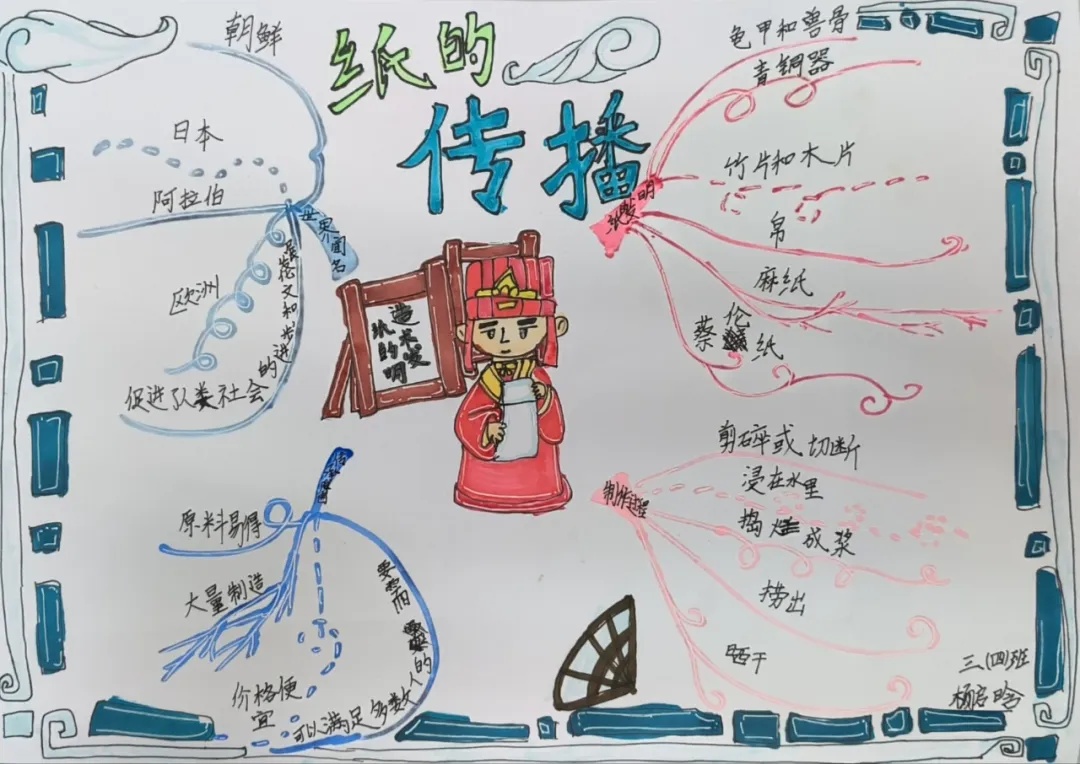 纸的
传播
朝鲜
日本
阿拉伯
欧洲
世界闻名
促进了人类社会的进步和文化发展
造纸术的发明
纸发明
龟甲和兽骨
青铜器
竹片和木片
帛
麻纸
蔡伦纸
制作过程
剪碎或切断
浸在水里
捣烂成浆
捞出
晒干
原料易得
大量制造
价格便宜
可以满足多数人的需要
三(四)班